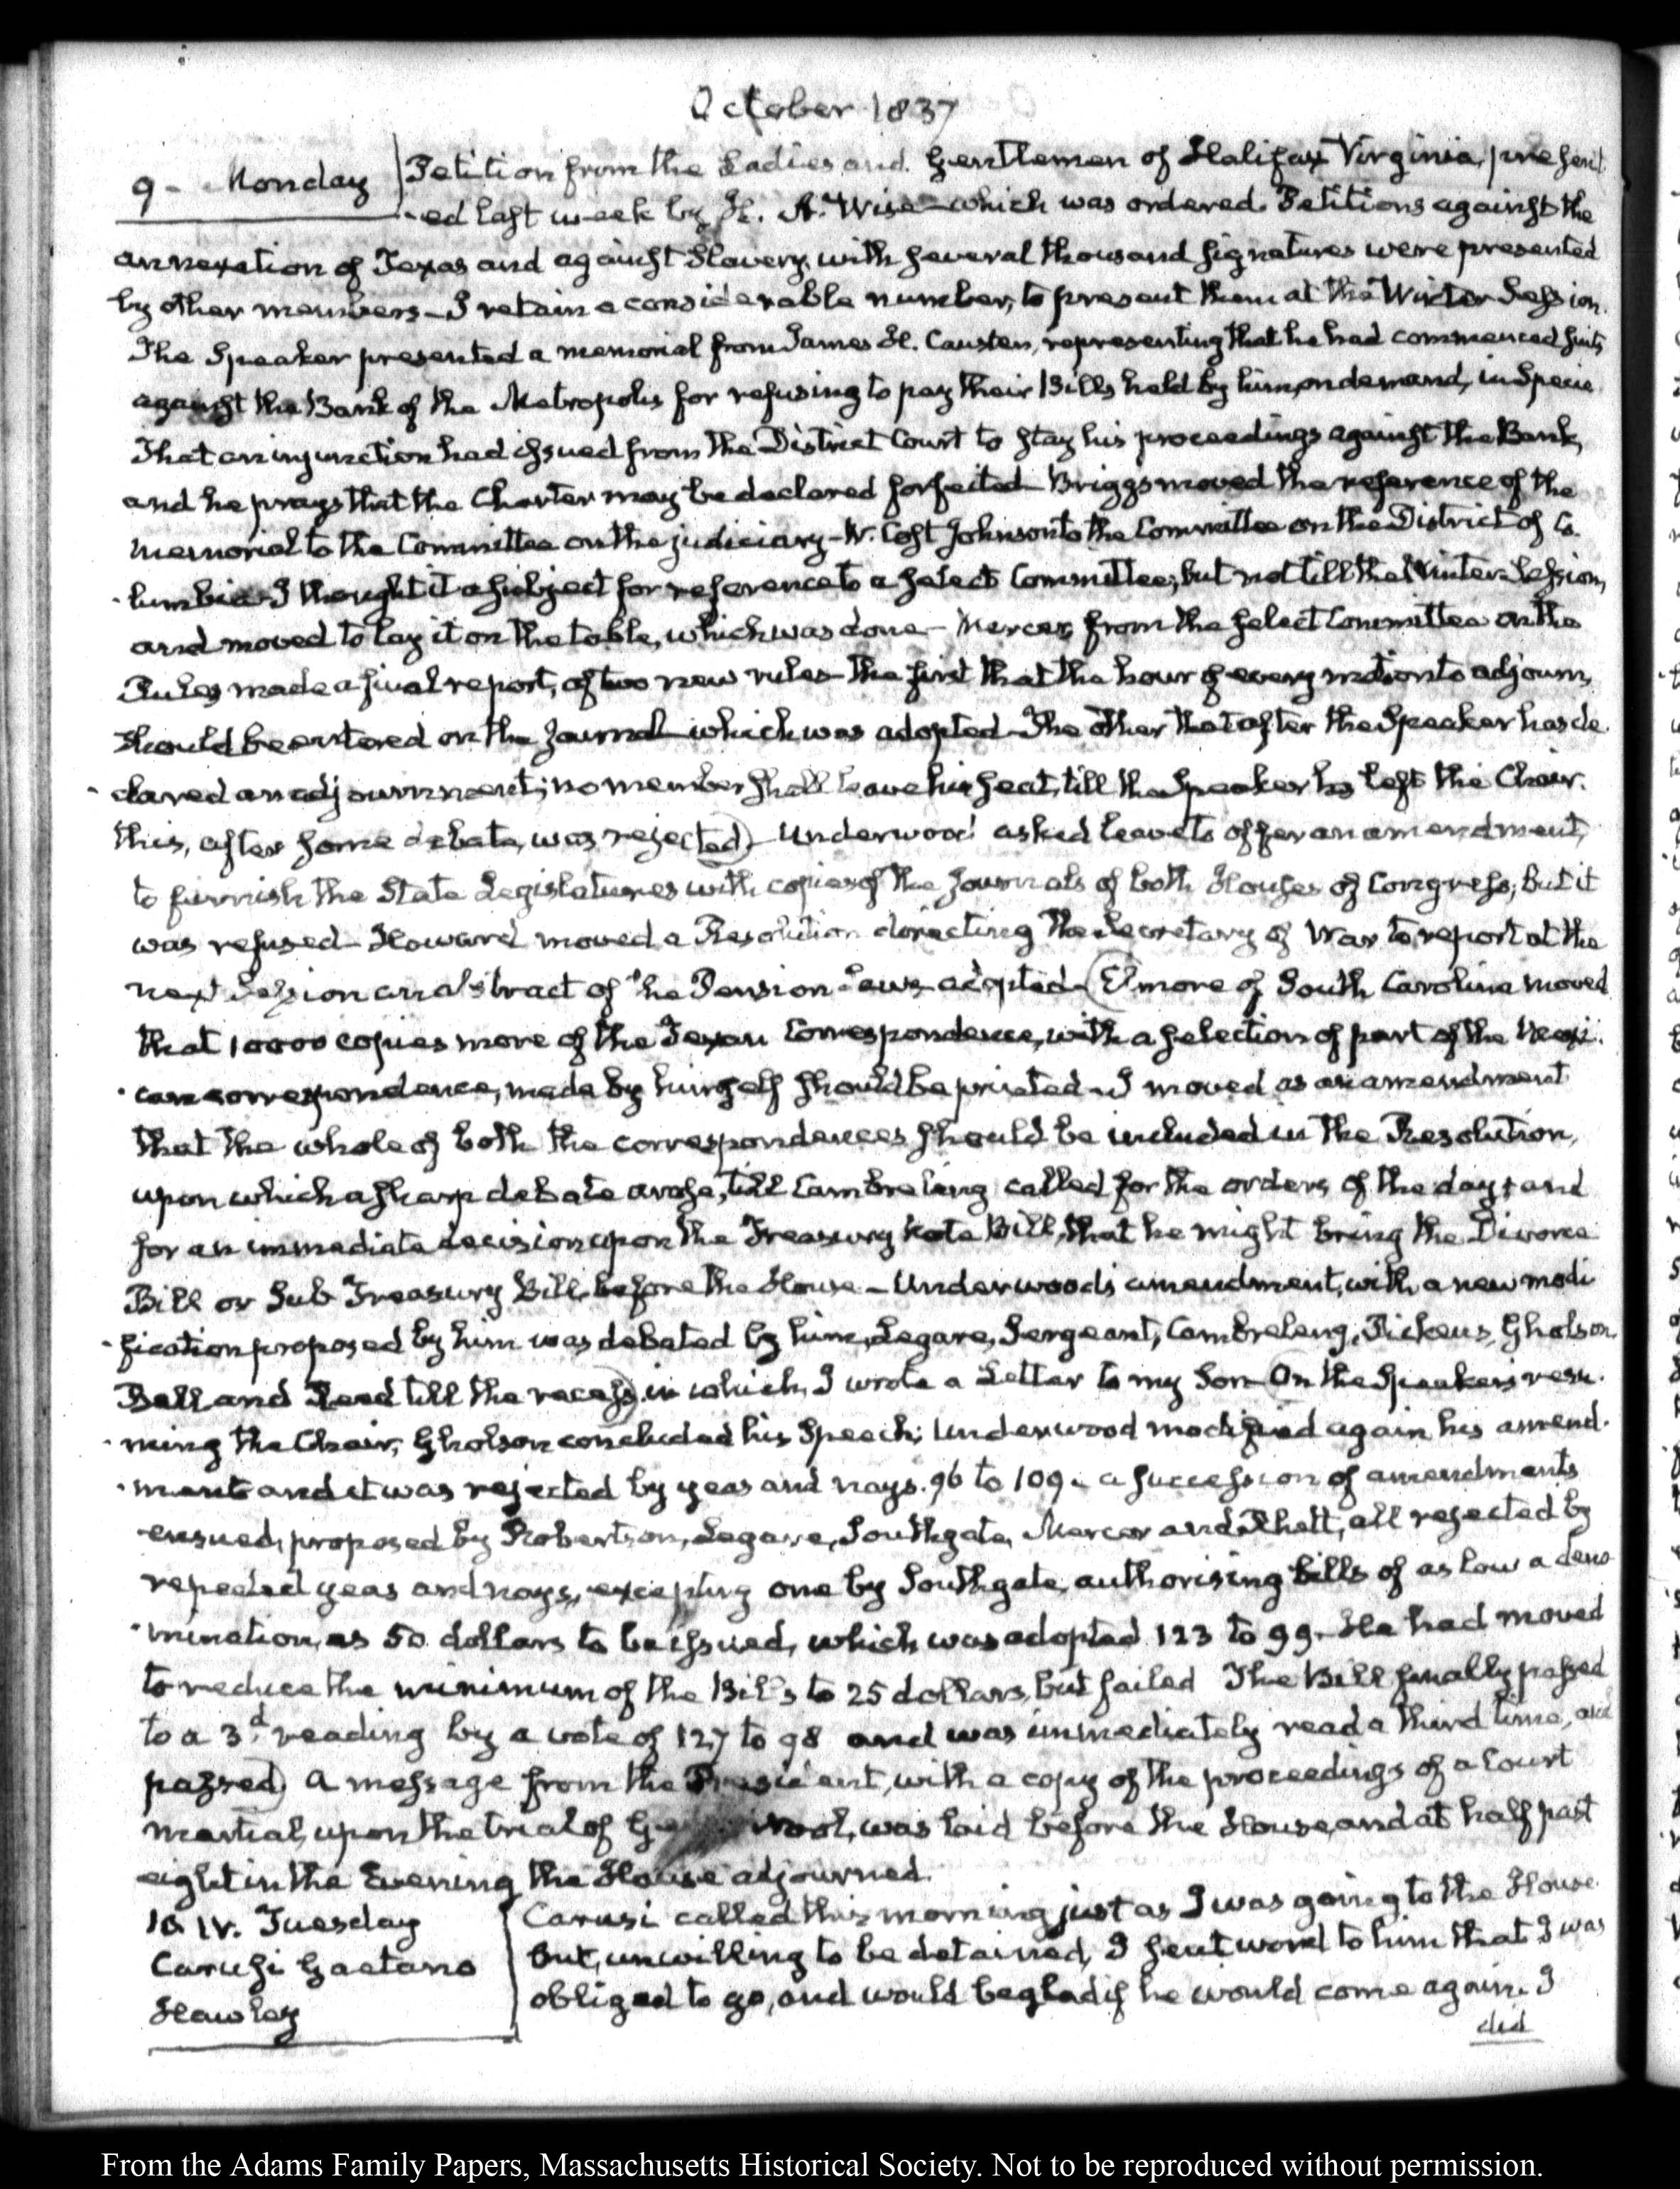 October 1837
9 - Monday
Petition from the Ladies and Gentlemen of Halifax Virginia, present
-ed last week by H. A. Wise - which was ordered. Petitions against the
annexation of Texas and against Slavery, with several thousand signatures were presented
by other members - I retain a considerable number, to present them at the Winter Session.
The Speaker presented a memorial from James H. Causten, representing that he had commenced suits
against the Bank of the Metropolis for refusing to pay their Bills held by him, on demand, in Specie
That an injunction had issued from the District Court to stay his proceedings against the Bank,
and he prays that the Charter may be declared forfeited - Briggs moved the reference of the
memorial to the Committee on the judiciary - W. Cost Johnson to the Committee on the District of Co-
-lumbia - I thought it a subject for reference to a select Committee; but not till the Winter Session,
and moved to lay it on the table, which was done - Mercer from the select Committee on the
Rules made a final report, of two new rules - the first that the hour of every motion to adjourn,
should be entered on the Journal - which was adopted - The other that after the Speaker has de-
-clared an adjournment; no member shall leave his seat, till the Speaker has left the Chair.
this, after some debate, was rejected - Underwood asked leave to offer an amendment,
to furnish the State Legislatures with copies of the Journals of both Houses of Congress; but it
was refused - Howard moved a Resolution directing the Secretary of War to report at the
next Session an abstract of the Pension Laws adopted - Elmore of South Carolina moved
that 10000 copies more of the Texan Correspondence, with a selection of part of the Mexi-
-can correspondence, made by himself should be printed - I moved as an amendment
that the whole of both the correspondences should be included in the Resolution,
upon which a sharp debate arose, till Cambreleng called for the orders of the day, and
for an immediate decision upon the Treasury Note Bill, that he might bring the Divorce
Bill or Sub Treasury Bill, before the House - Underwood's amendment, with a new modi
-fication proposed by him was debated by him, Legare, Sergeant, Cambreleng, Pickens, Gholson,
Bell and Reed till the recess, in which, I wrote a Letter to my Son - On the Speaker's resu-
-ming the Chair, Gholson concluded his Speech; Underwood modified again his amend-
-ment and it was rejected by yeas and nays. 96 to 109. a succession of amendments
ensued, proposed by Robertson, Legare, Southgate, Mercer and Rhett, all rejected by
repeated yeas and nays, excepting one by Southgate, authorising bills of as low a deno
-mination, as 50 dollars to be issued, which was adopted 123 to 99. He had moved
to reduce the minimum of the Bills to 25 dollars, but failed The Bill finally passed
to a 3d. reading by a vote of 127 to 98 and was immediately read a third time, and
passed A message from the President, with a copy of the proceedings of a Court
martial, upon the trial of Wool, was laid before the House, and at half past
eight in the Evening the House adjourned.
10 IV. Tuesday
Carusi Gaetano
Hawley
Carusi called this morning just as I was going to the House
But, unwilling to be detained, I sent word to him that I was
obliged to go, and would be glad if he would come again. I
did
From the Adams Family Papers, Massachusetts Historical Society. Not to be reproduced without permission.